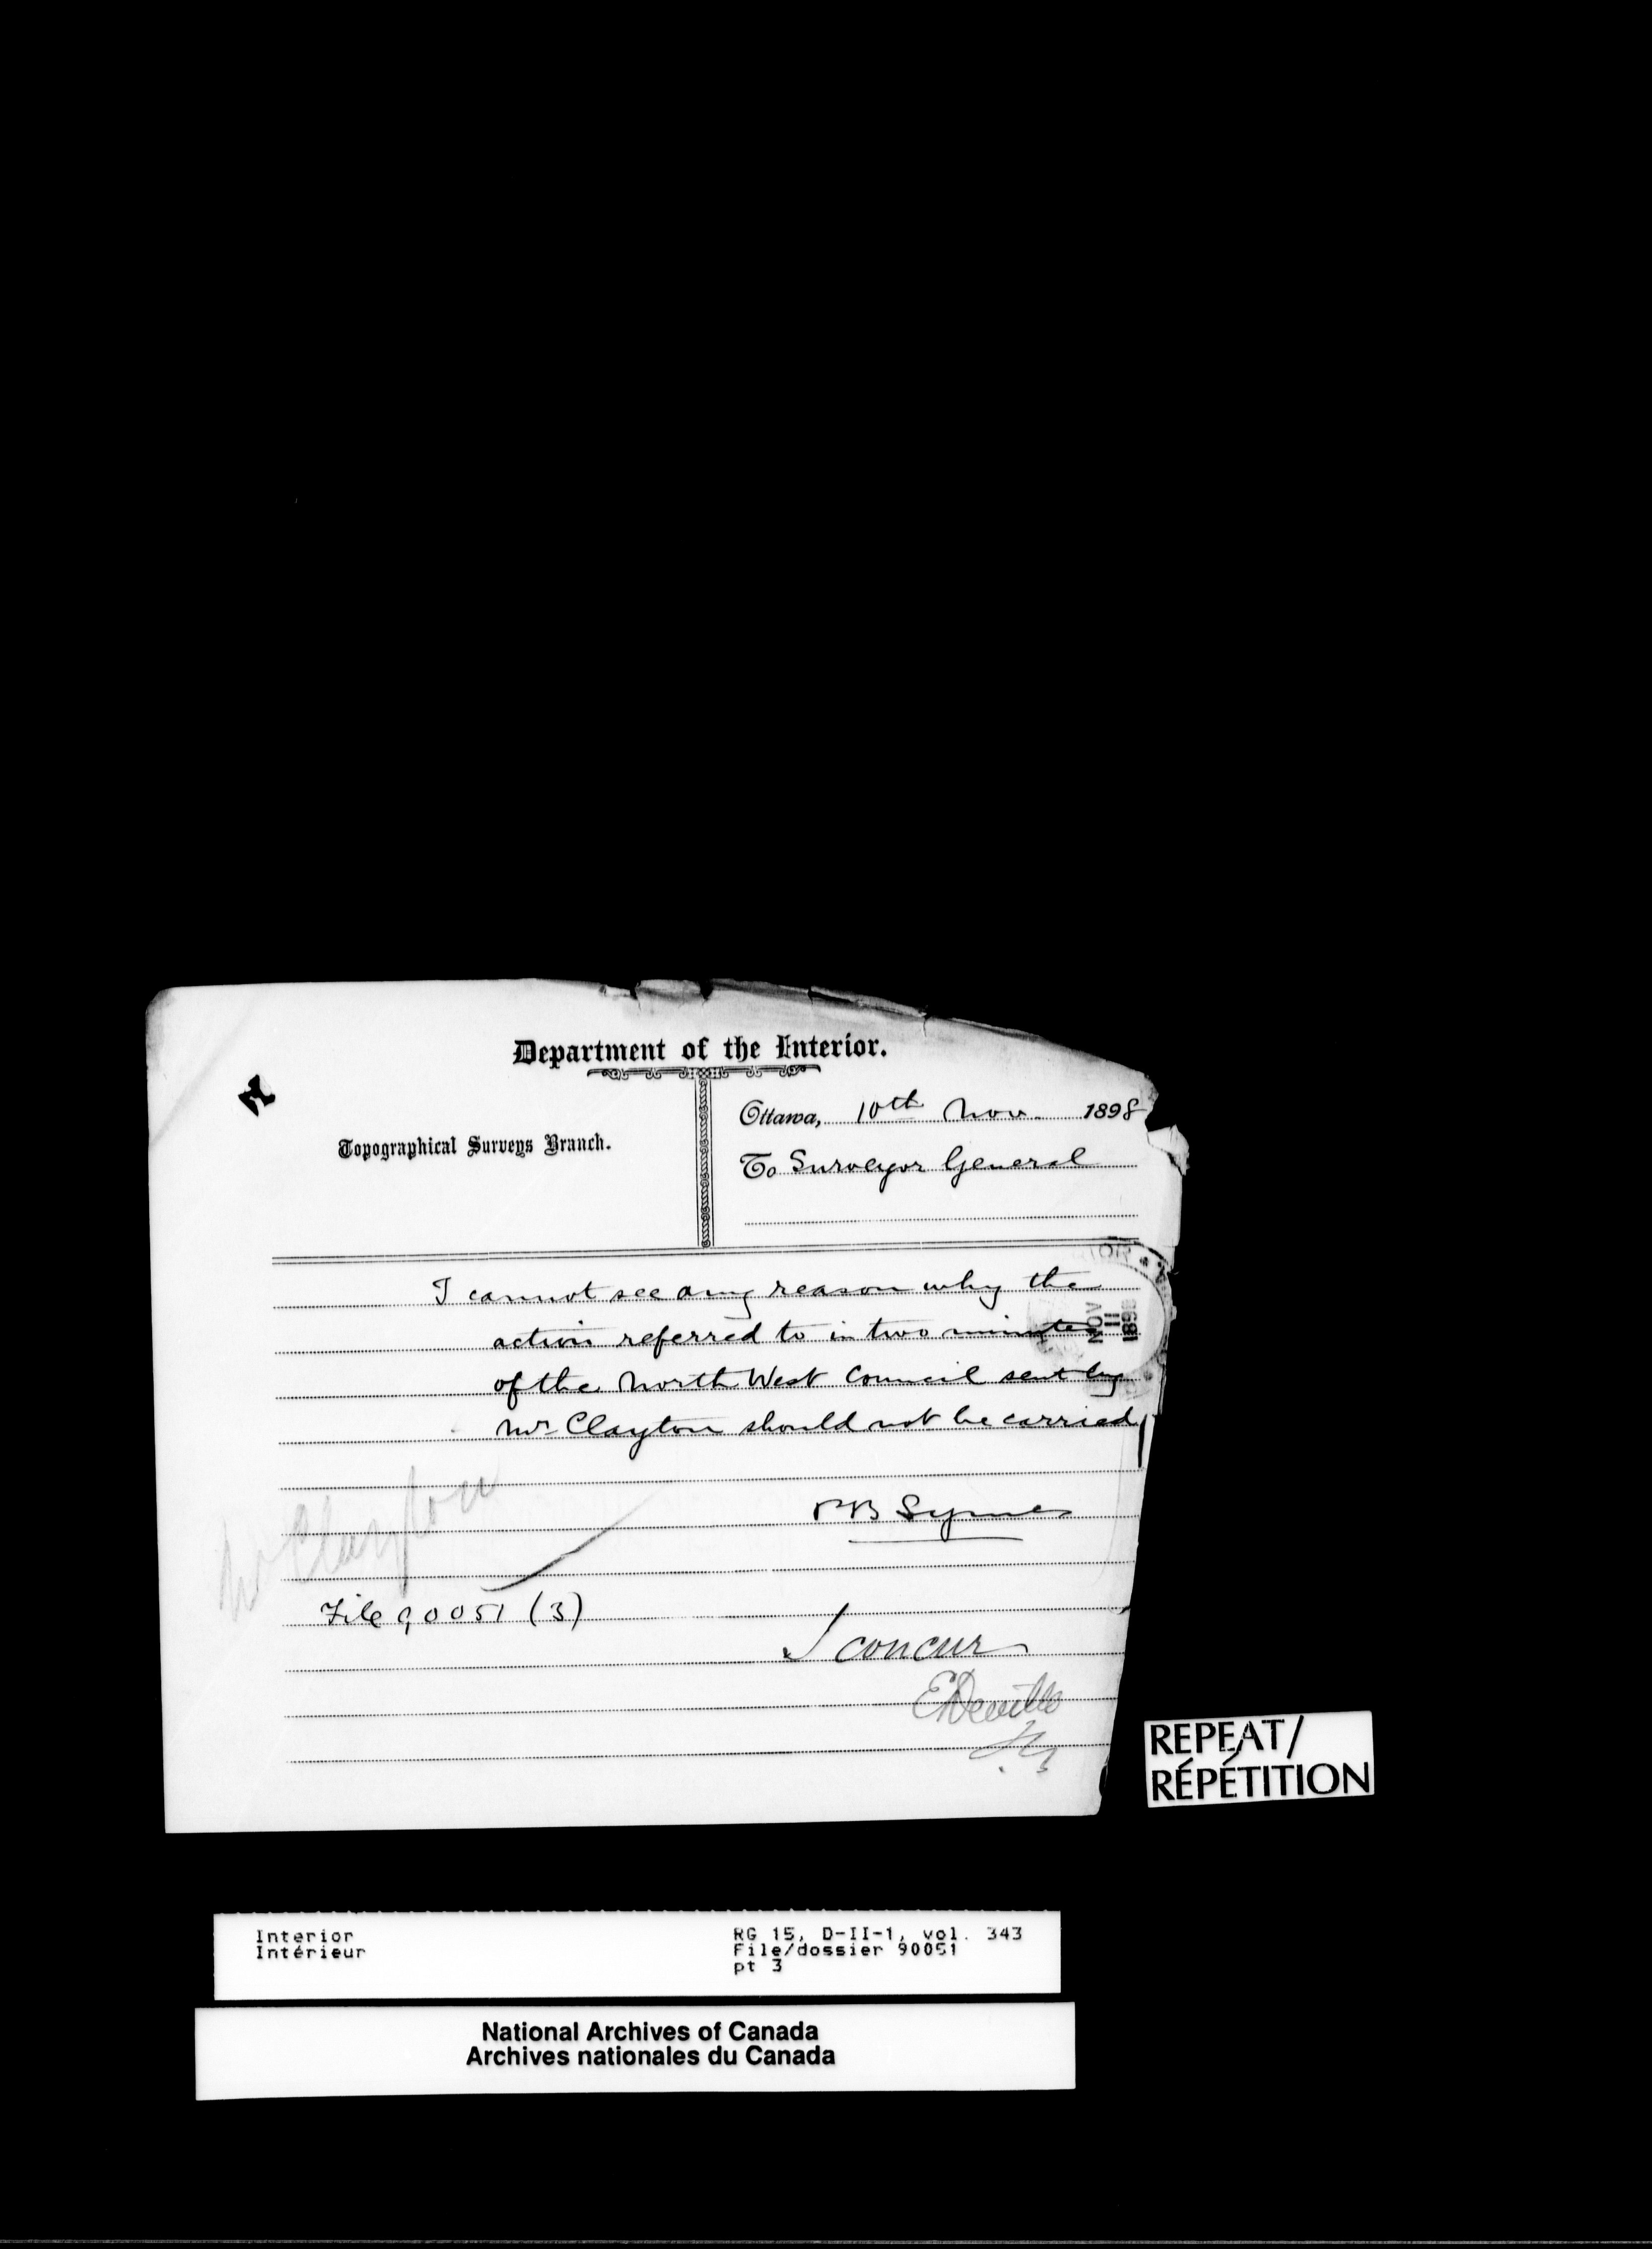 Department of the Interior.
Topographical Surveys Branch.
Ottawa, 10th Nov. 1898
To Surveyor General
I cannot see any reason why the
action referred to in two minutes
of the North West Council sent by
Mr Clayton should not be carried
NOV
11
1898
Mr Clayton
PB Symes
File 90051 (3)
I concur
E Deville
REPEAT/
RÉPÉTITION
Interior
Intérieur
RG 15, D-II-1, vol. 343
File/dossier 90051
pt 3
National Archives of Canada
Archives nationales du Canada